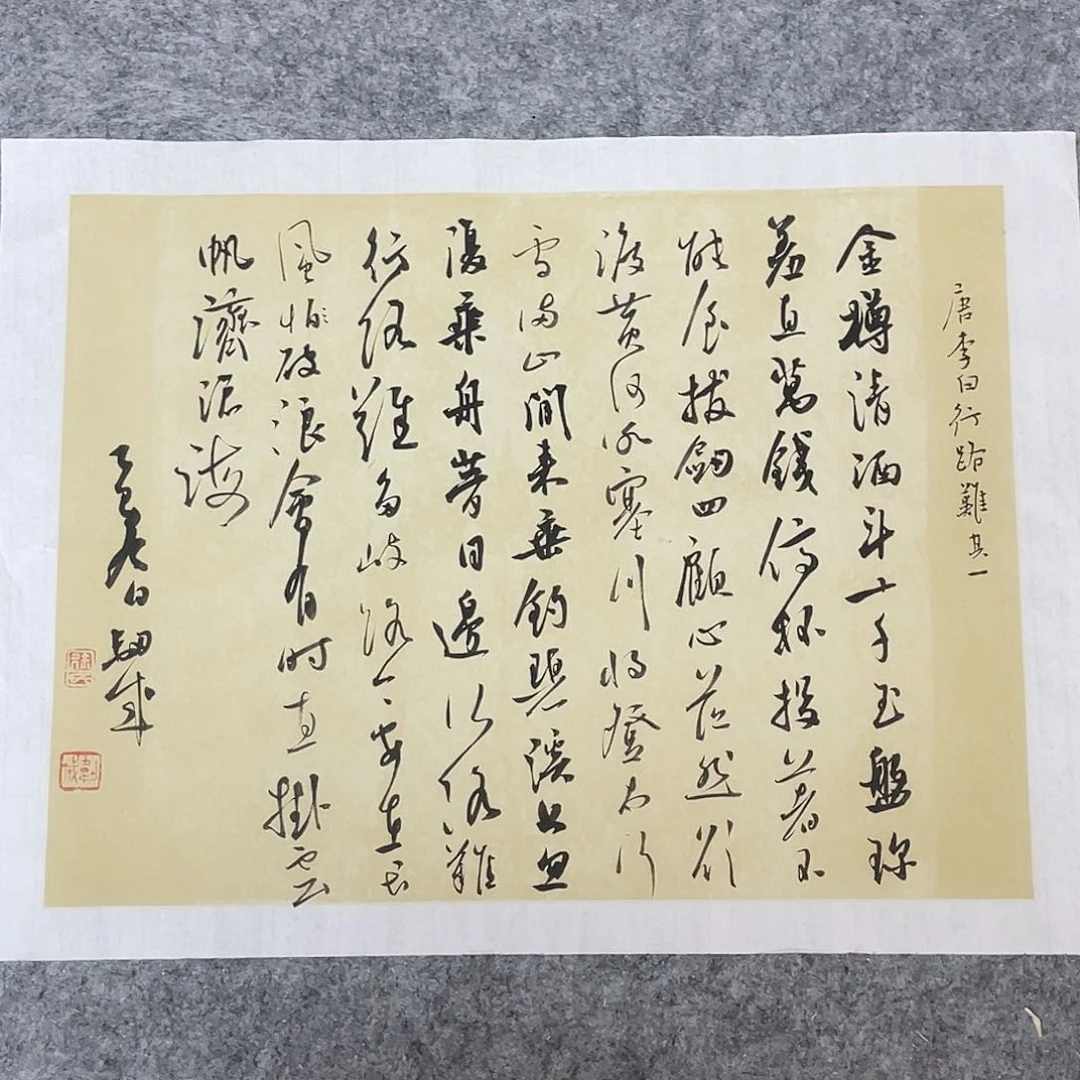 唐李白行路難其一
金樽清酒斗十千玉盤珎
羞直萬錢停杯投箸不
能食拔劍四顧心茫然欲
渡黃河冰塞川將登太行
雪滿山閒來垂釣碧溪上忽
復乘舟夢日邊行路難
行路難多岐路今安在長
風破浪會有時直掛雲
帆濟滄海
乙巳春日